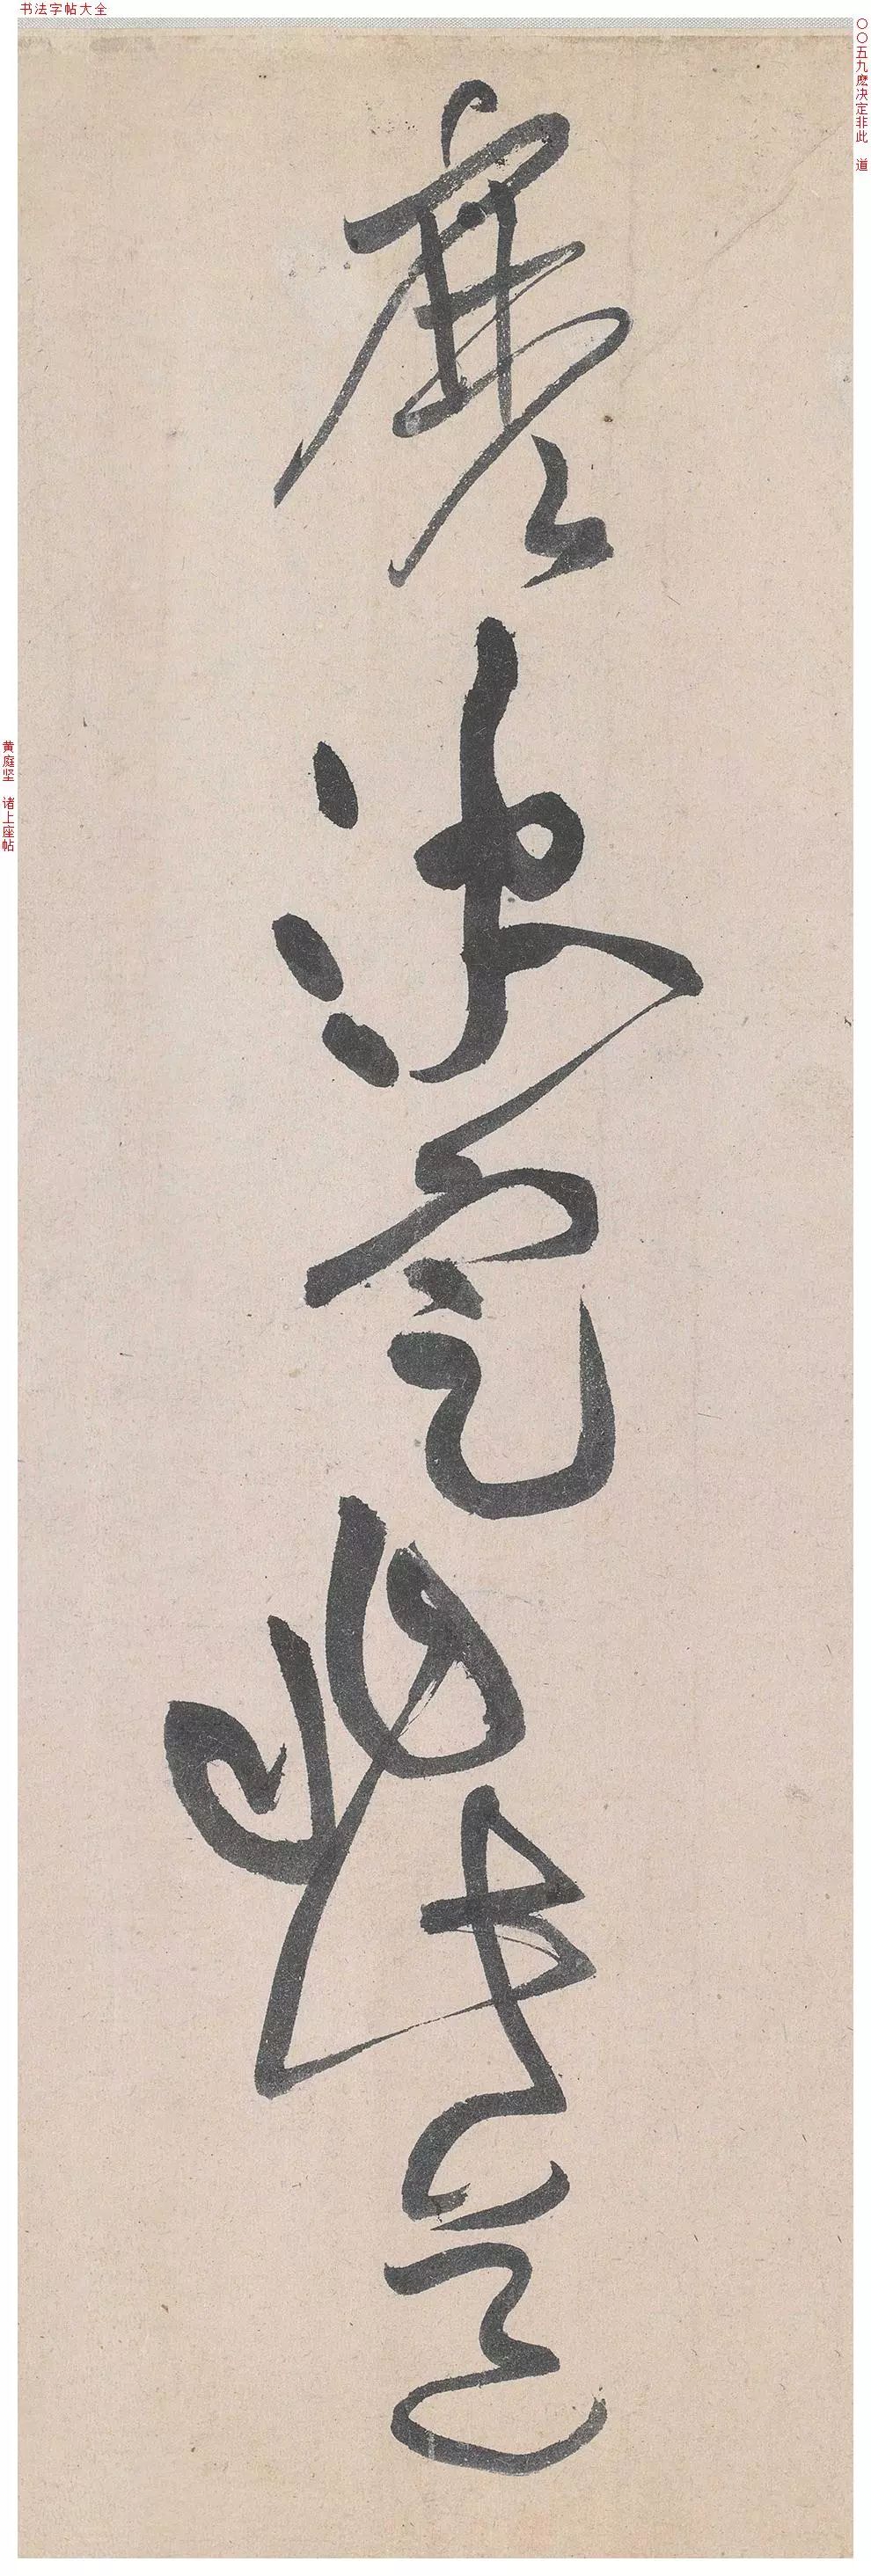 书法字帖大全
〇〇五九麽决定非此 道
麽决定非此道
黄庭坚 诸上座帖